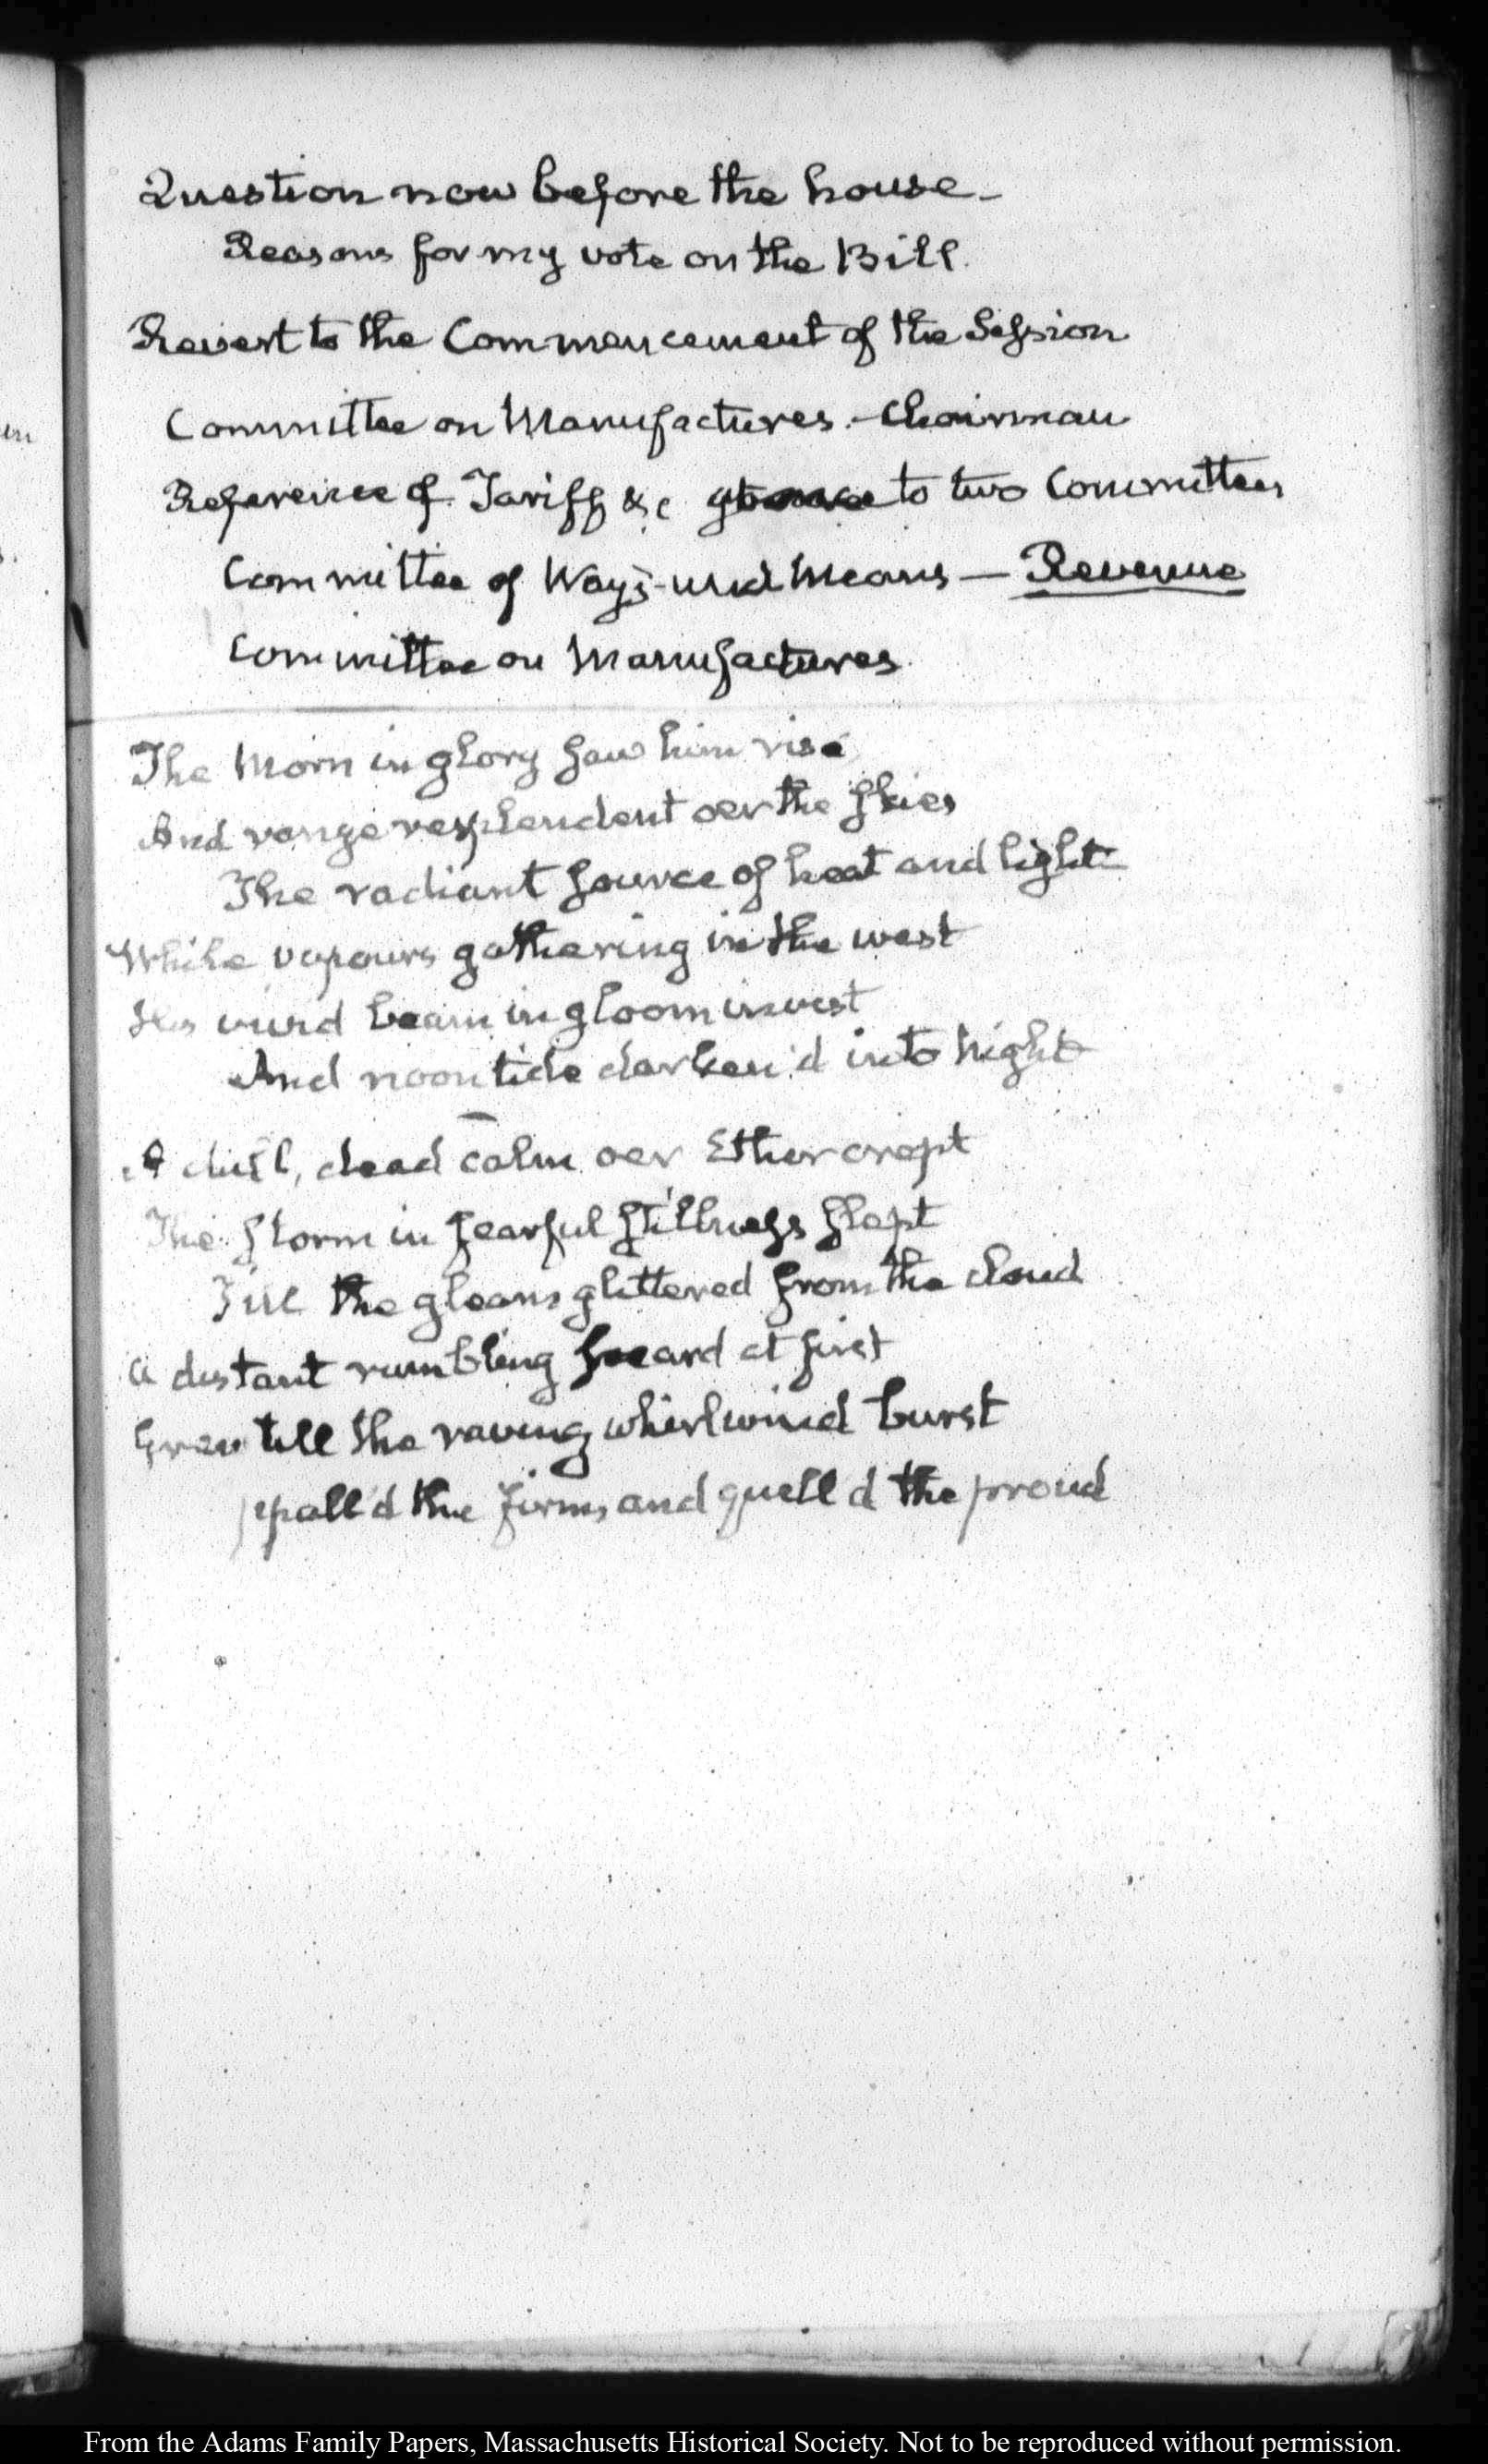 Question now before the house –
Reasons for my vote on the Bill.
Revert to the Commencement of the Session
Committee on Manufactures. – Chairman
Reference of Tariff &c to two Committees
Committee of Ways and Means — Revenue
Committee on Manufactures.
The Morn in glory saw him rise
And range resplendent oer the skies
The radiant source of heat and light
While vapours gathering in the west
His vivid beam in gloom invest
And noontide darken'd into night
A dull, dead calm oer Ether crept
The storm in fearful stillness slept
Till the gleams glittered from the cloud
a distant rumbling heard at first
Grew till the raving whirlwind burst
the firm, and quell'd the proud
From the Adams Family Papers, Massachusetts Historical Society. Not to be reproduced without permission.